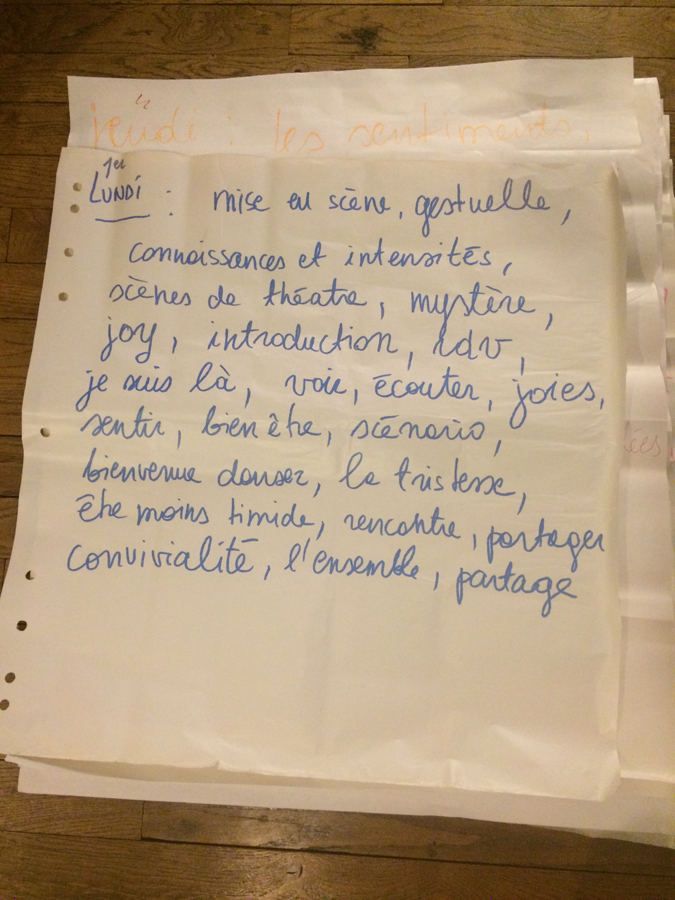 jeudi : les sentiments.
1er
LUNDI : mise en scène, gestuelle,
connaissances et intensités,
scènes de théatre, mystère,
joy, introduction, rdv,
je suis là, voir, écouter, joies,
sentir, bien être, scénario,
bienvenue danser, la tristesse,
être moins timide, rencontre, partager
convivialité, l'ensemble, partage